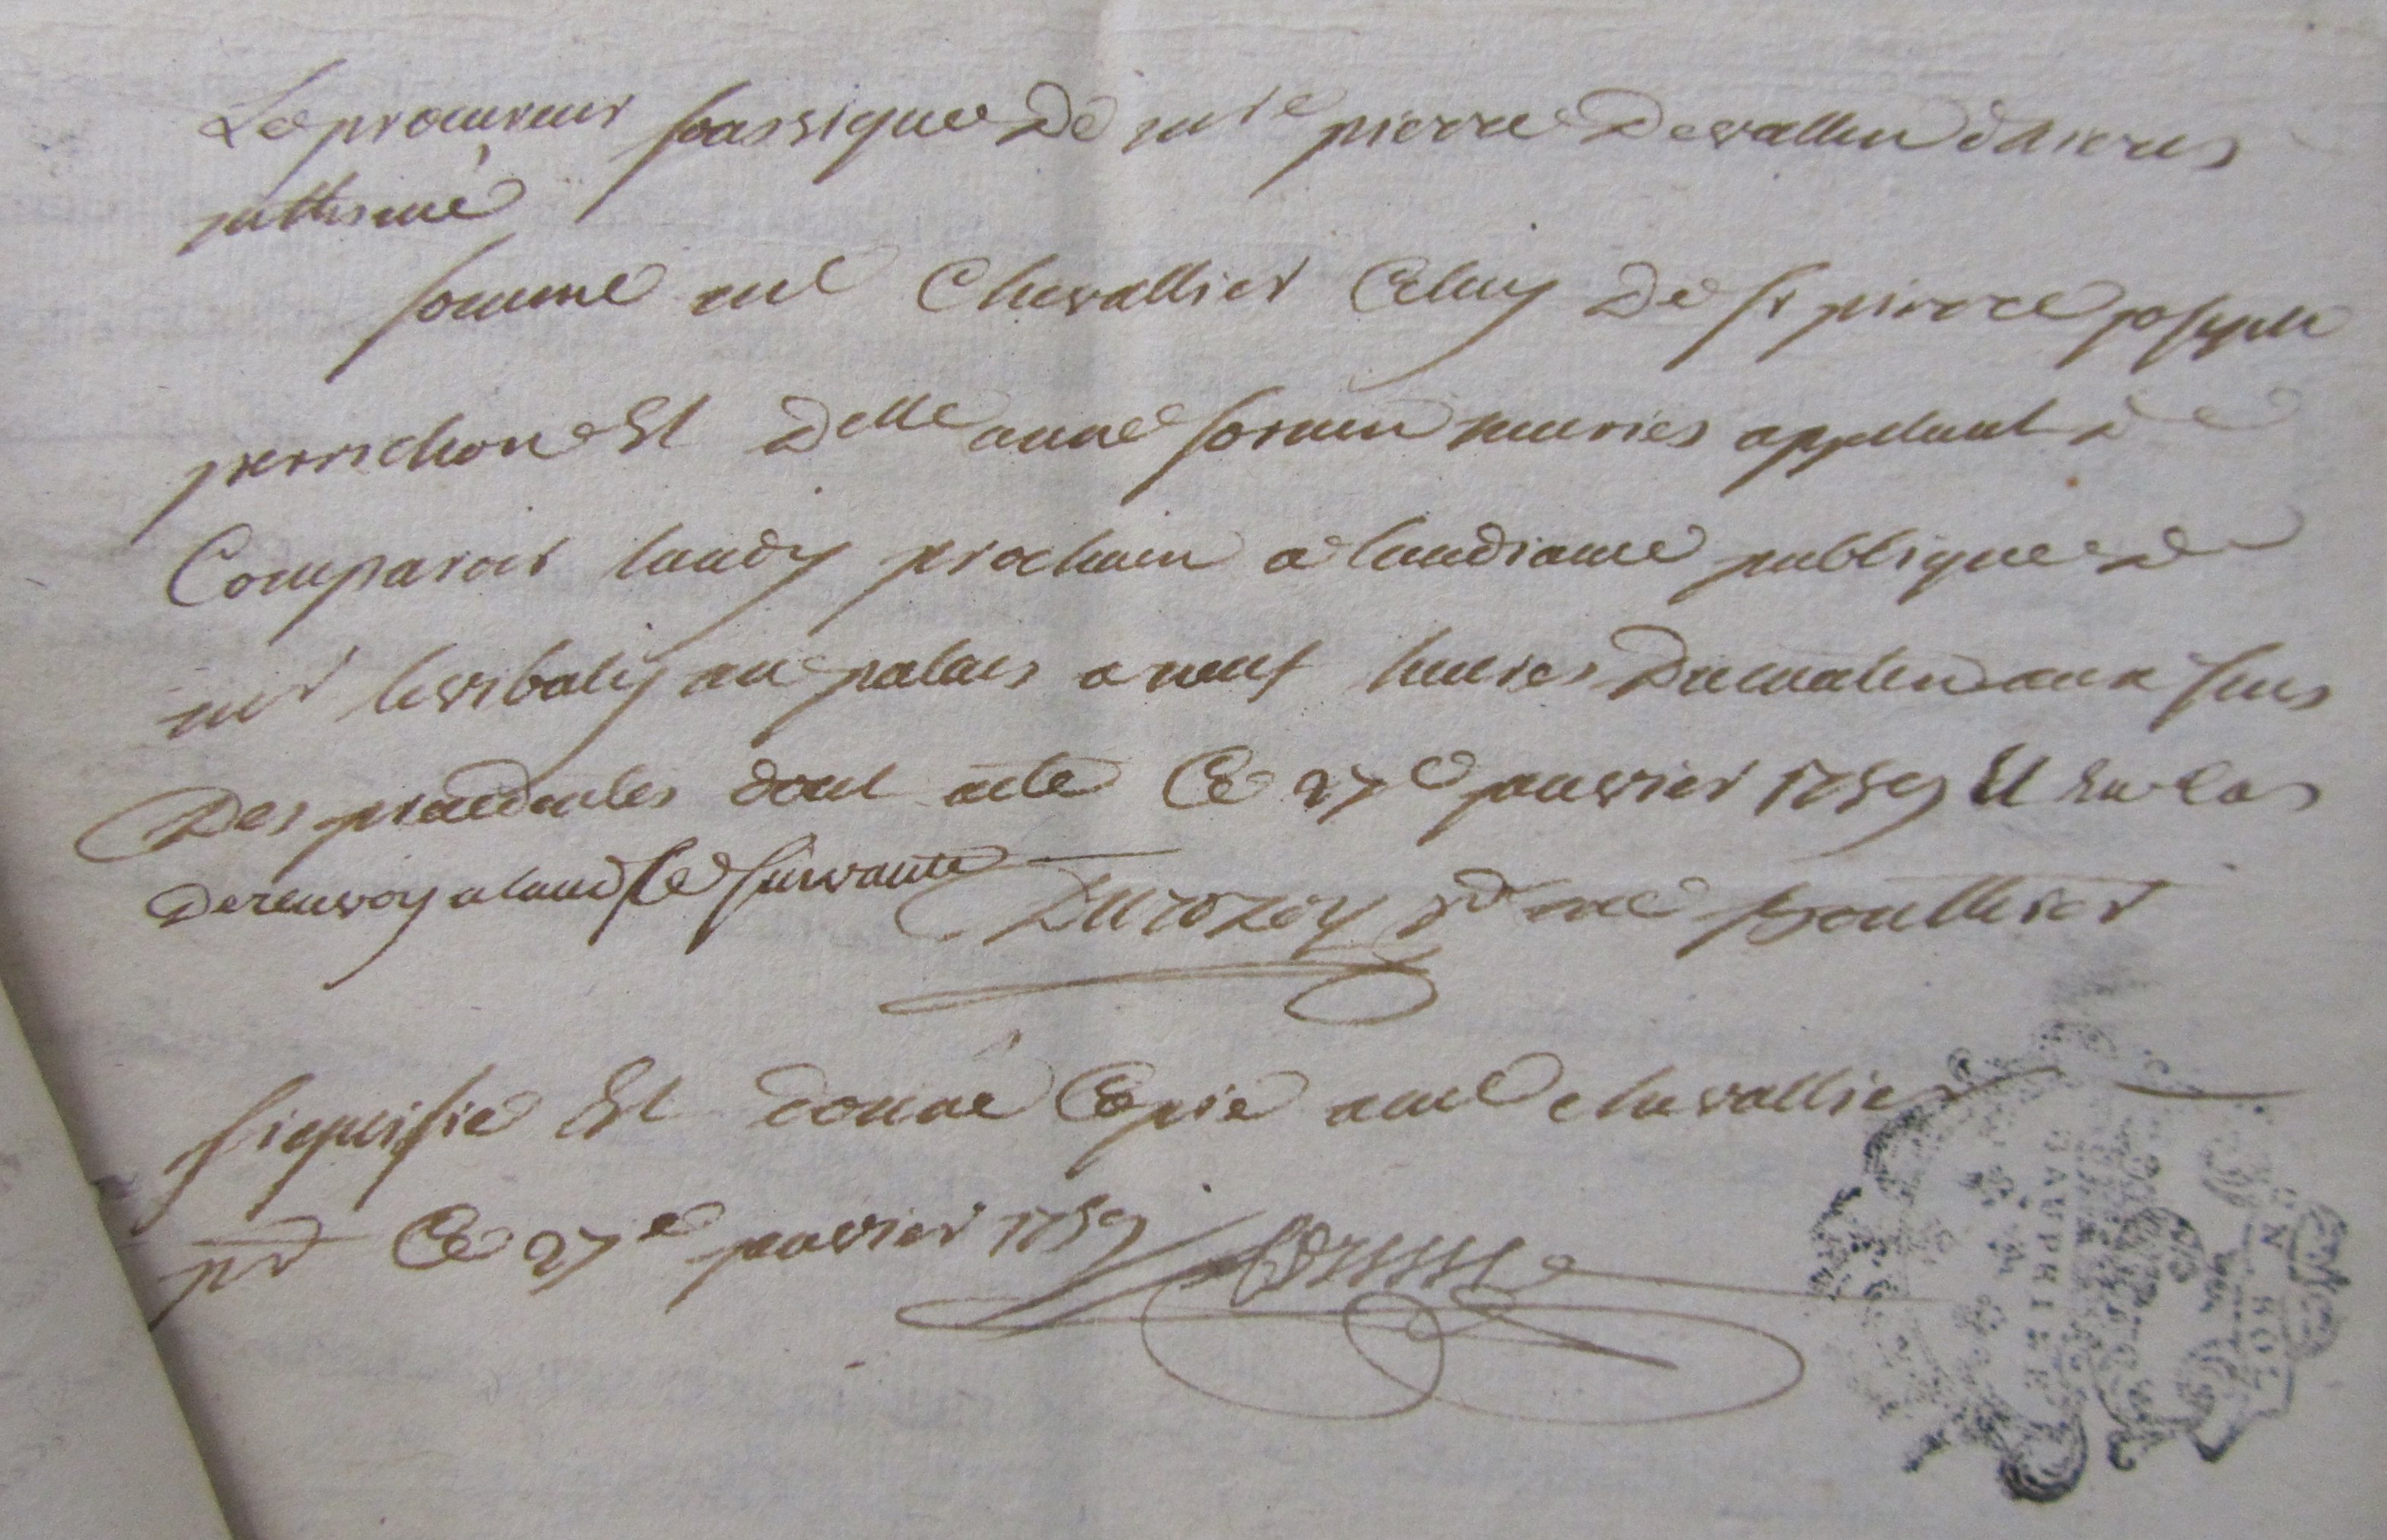 Le procureur soussigné De mre pierre Devallin d'hieres
inthimé
somme me Chevallier Celuy De sr pierre joseph
perrichon Et Delle anne mariés appellant de
Comparoir lundy prochain a laudiance publique de
mr le vibaly au palais a neuf heures Du matin aux fins
Des precedentes dont acte Ce 27e janvier 1759 Et En Cas
De renvoy a laudce suivante
Durozey pr me Boullier
signifié Et donné Copie a me chevallier
pr Ce 27e janvier 1759
DAUPHINÉ